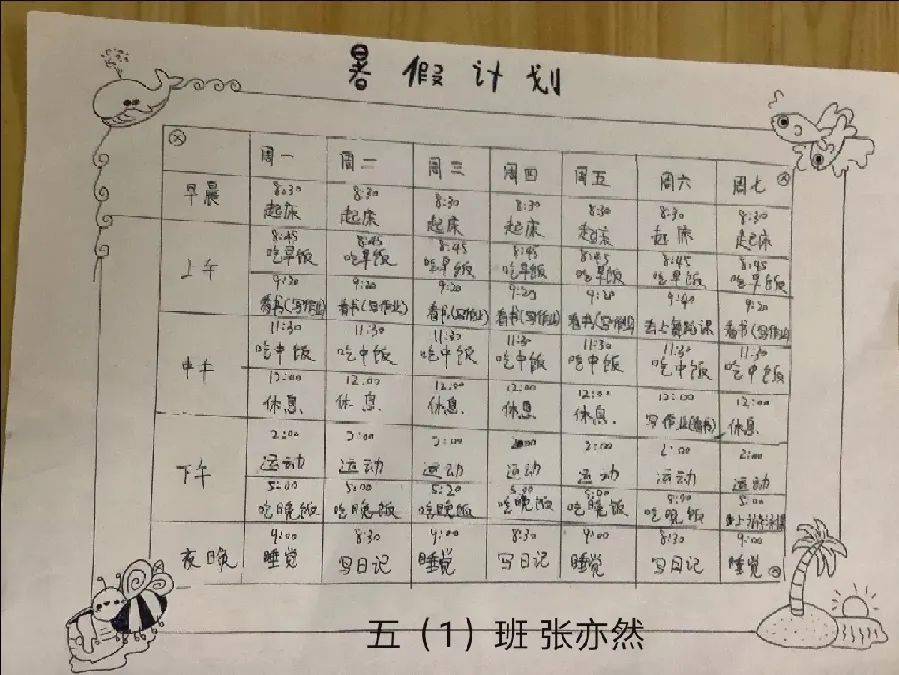 暑假计划
周一 周二 周三 周四 周五 周六 周七
早晨
8:30 8:30 8:30 8:30 8:30 8:30 8:30
起床 起床 起床 起床 起床 起床 起床
上午
8:45 8:45 8:45 8:45 8:45 8:45 8:45
吃早饭 吃早饭 吃早饭 吃早饭 吃早饭 吃早饭 吃早饭
9:20 9:20 9:20 9:20 9:20 9:40 9:20
看书(写作业) 看书(写作业) 看书(写作业) 看书(写作业) 看书(写作业) 去上 课 看书(写作业)
中午
11:30 11:30 11:30 11:30 11:30 11:30 11:30
吃中饭 吃中饭 吃中饭 吃中饭 吃中饭 吃中饭 吃中饭
12:00 12:00 12:00 12:00 12:00 12:00 12:00
休息 休息 休息 休息 休息 写作业(看书) 休息
下午
2:00 2:00 2:00 2:00 2:00 2:00
运动 运动 运动 运动 运动 运动 运动
5:00 5:00 5:20 5:00 5:00
吃晚饭 吃晚饭 吃晚饭 吃晚饭 吃晚饭 吃晚饭 上游泳课
夜晚
9:00 8:30 9:00 8:30 9:00 8:30 9:00
睡觉 写日记 睡觉 写日记 睡觉 写日记 睡觉
五（1）班 张亦然